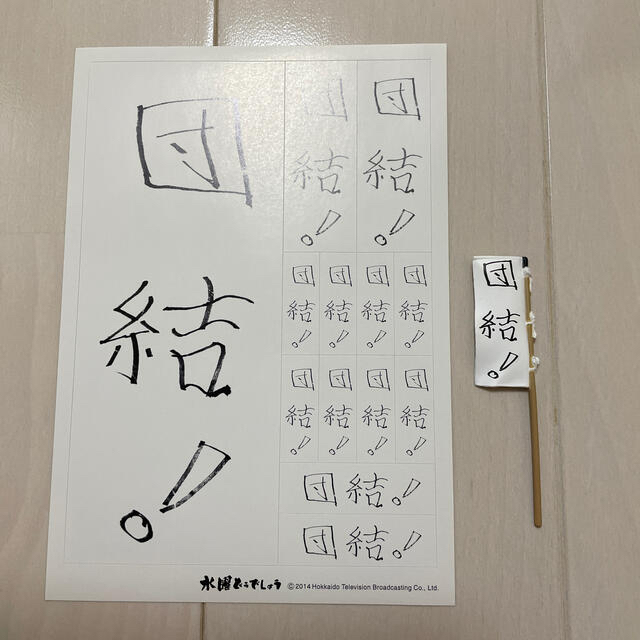 団結!
団結!
団結!
団結!
団結!
団結!
団結!
団結!
団結!
団結!
団結!
団結!
団結!
水曜どうでしょう ©2014 Hokkaido Television Broadcasting Co., Ltd.
団結!